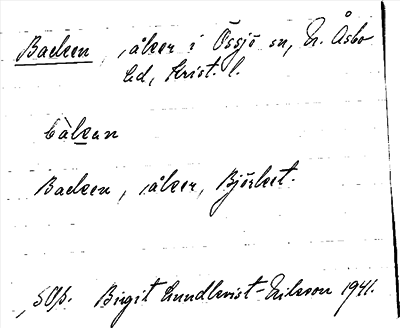 Backen, åker i Össjö sn, N. Åsbo
hd, Krist. l.
bàkan
Backen, åker, Björket.
50p. Birgit Lundkvist-Eriksson 1941.